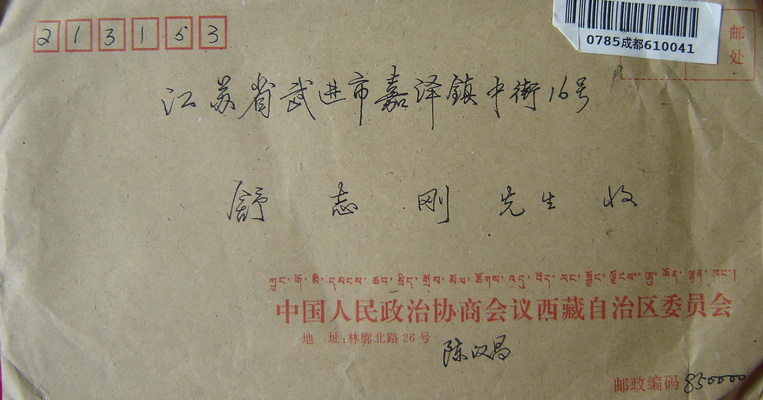 213153
0785成都610041
邮
处
江苏省武进市嘉泽鎮中街16号
舒志刚先生收
ཀྲུང་གོ་མི་དམངས་ཆབ་སྲིད་གྲོས་མོལ་ཚོགས་འདུ་བོད་རང་སྐྱོང་ལྗོངས་ཨུ་ཡོན་ལྷན་ཁང་།
中国人民政治协商会议西藏自治区委员会
地 址:林廓北路26号
陈汉昌
邮政编码 850000